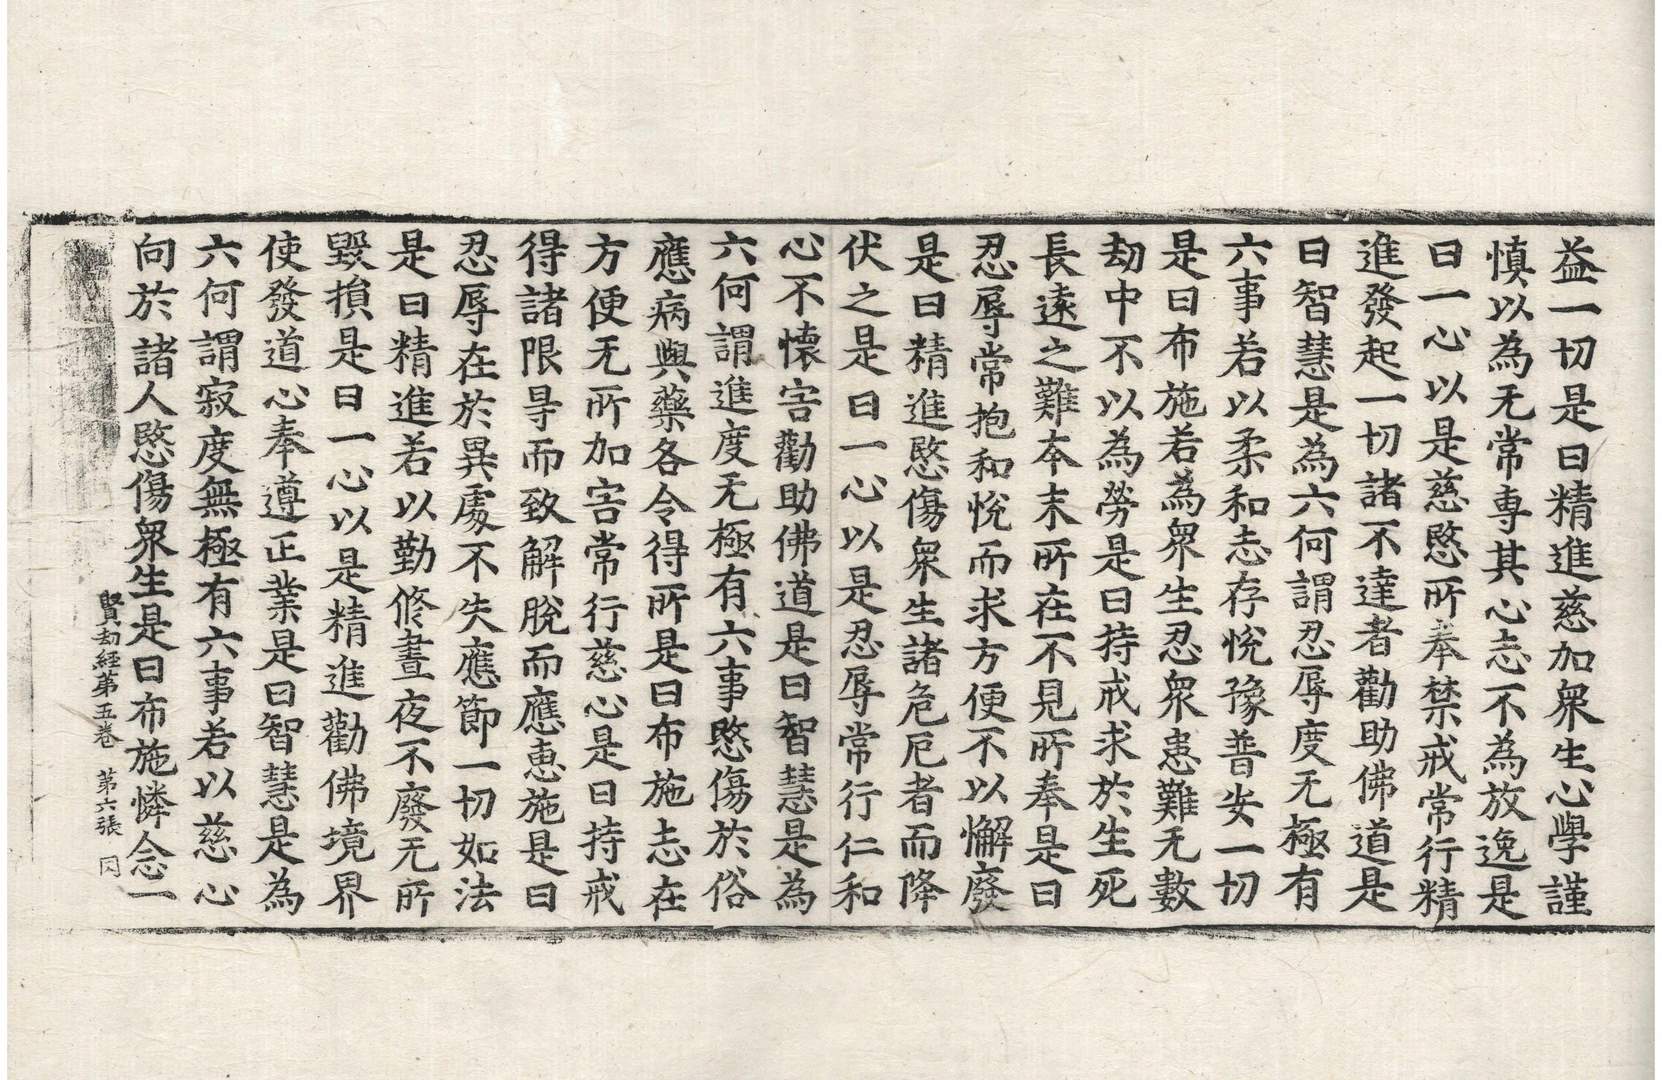 益一切是曰精進慈加衆生心學謹
慎以為无常專其心志不為放逸是
曰一心以是慈愍所奉禁戒常行精
進發起一切諸不達者勸助佛道是
曰智慧是為六何謂忍辱度无極有
六事若以柔和志存悅豫普安一切
是曰布施若為衆生忍衆患難无數
劫中不以為勞是曰持戒求於生死
長遠之難本末所在不見所奉是曰
忍辱常抱和悅而求方便不以懈廢
是曰精進愍傷衆生諸危厄者而降
伏之是曰一心以是忍辱常行仁和
心不懷害勸助佛道是曰智慧是為
六何謂進度无極有六事愍傷於俗
應病與藥各令得所是曰布施志在
方便无所加害常行慈心是曰持戒
得諸限㝵而致解脫而應惠施是曰
忍辱在於異處不失應節一切如法
是曰精進若以勤修晝夜不廢无所
毀損是曰一心以是精進勸佛境界
使發道心奉遵正業是曰智慧是為
六何謂寂度無極有六事若以慈心
向於諸人愍傷衆生是曰布施憐念一
賢劫經第五卷 第六張 㒷